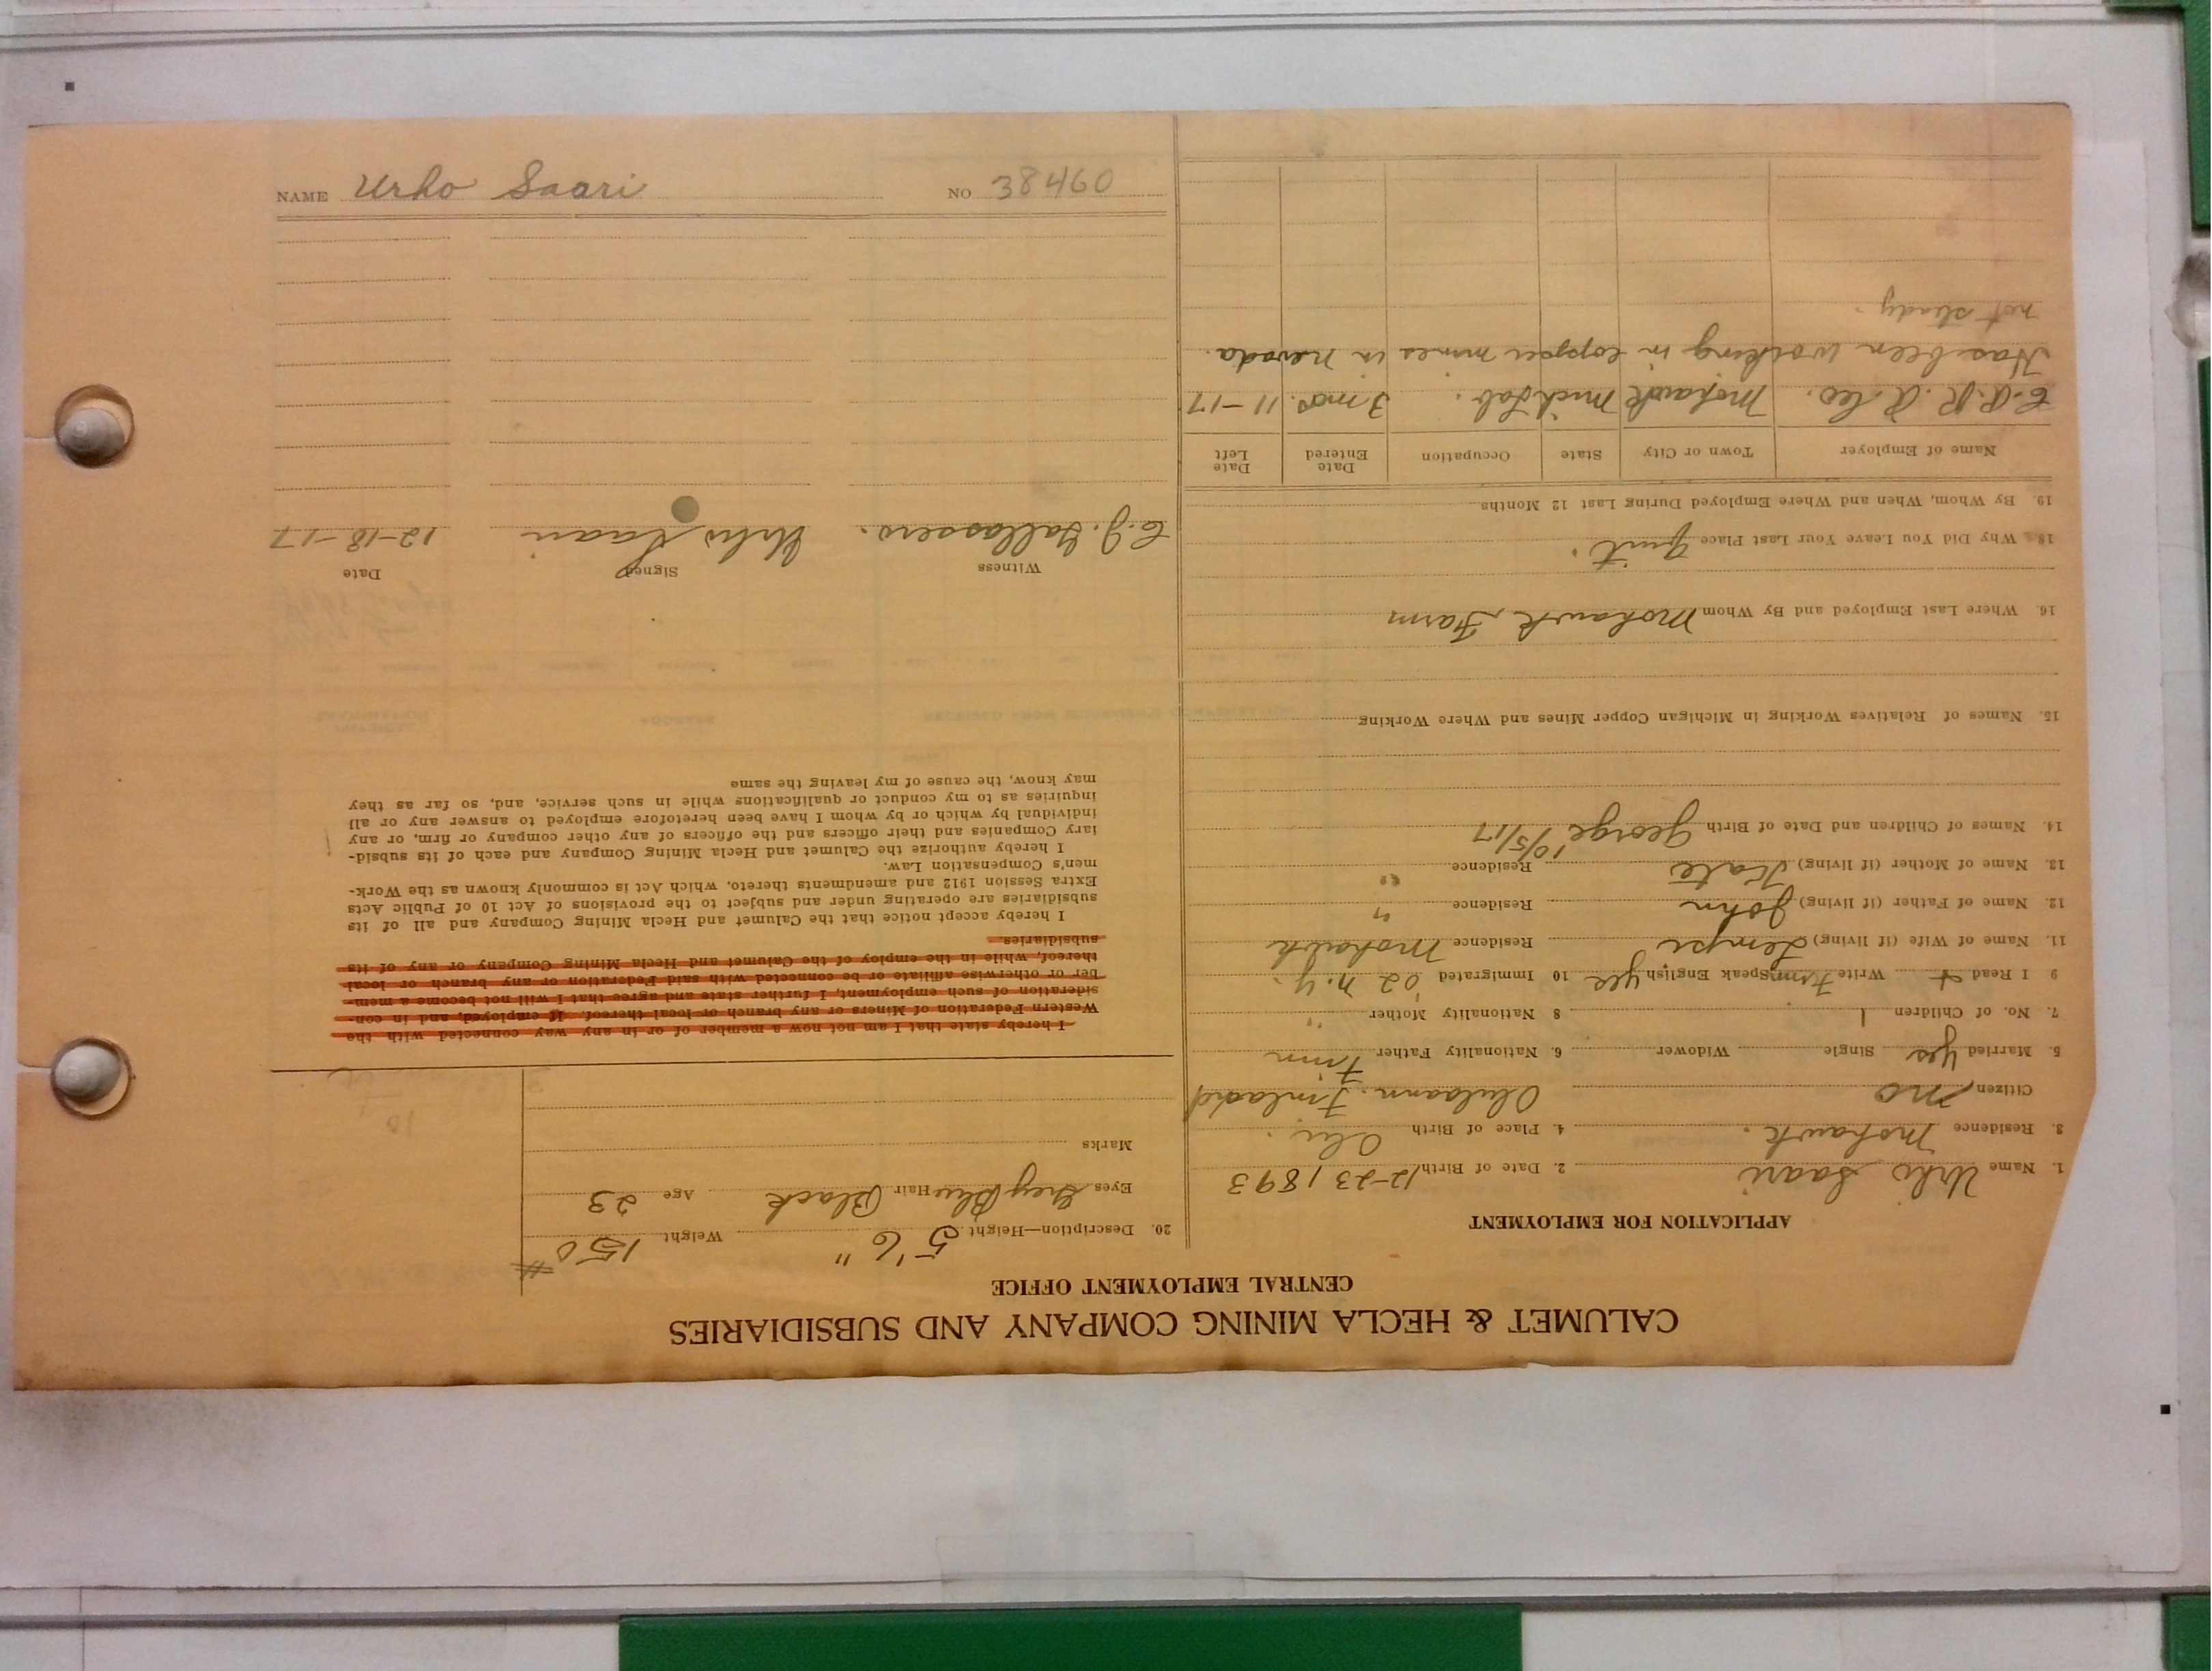 CALUMET & HECLA MINING COMPANY AND SUBSIDIARIES
CENTRAL EMPLOYMENT OFFICE
APPLICATION FOR EMPLOYMENT
1. Name Urho Saari 2. Date of Birth 12-23 1893
3. Residence Mohawk. 4. Place of Birth Olu.
Citizen no Finland
5. Married yes Single Widower 6. Nationality Father Finn
7. No. of Children 1 8 Nationality Mother "
9 I Read + Write Finn Speak English yes 10 Immigrated '02 N.Y.
11. Name of Wife (if living) Lempi Residence Mohawk
12. Name of Father (if living) John Residence "
13. Name of Mother (if living) Kate Residence "
14. Names of Children and Date of Birth George 10/5/17
15. Names of Relatives Working in Michigan Copper Mines and Where Working
16. Where Last Employed and By Whom Mohawk, Farm
18. Why Did You Leave Your Last Place Quit.
19. By Whom, When and Where Employed During Last 12 Months
Name of Employer Town or City State Occupation Date Entered Date Left
R. R. Co. Mohawk Mich Lab. 3 mos. 11-17
Has been working in copper mines in Nevada.
not steady.
20. Description—Height 5' 6" Weight 150 #
Eyes Grey Blue Hair Black Age 23
Marks
I hereby state that I am not now a member of or in any way connected with the
Western Federation of Miners or any branch or local thereof. If employed, and in con-
sideration of such employment, I further state and agree that I will not become a mem-
ber or otherwise affiliate or be connected with said Federation or any branch or local
thereof, while in the employ of the Calumet and Hecla Mining Company or any of its
subsidiaries.
I hereby accept notice that the Calumet and Hecla Mining Company and all of its
subsidiaries are operating under and subject to the provisions of Act 10 of Public Acts
Extra Session 1912 and amendments thereto, which Act is commonly known as the Work-
men's Compensation Law.
I hereby authorize the Calumet and Hecla Mining Company and each of its subsid-
iary Companies and their officers and the officers of any other company or firm, or any
individual by which or by whom I have been heretofore employed to answer any or all
inquiries as to my conduct or qualifications while in such service, and, so far as they
may know, the cause of my leaving the same
Witness Signed Date
Urho Saari 12-18-17
NAME Urho Saari NO 38460